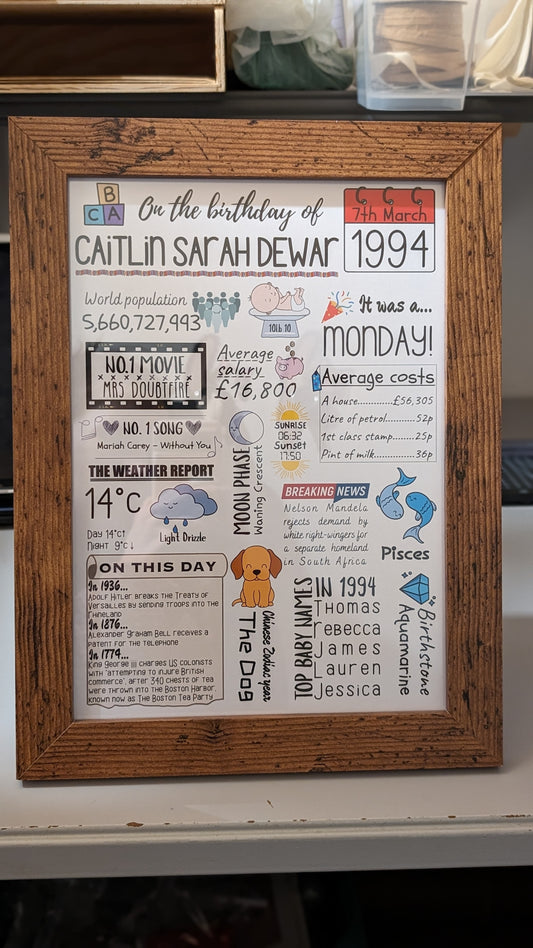 B
C A
On the birthday of
CAITLIN SARAH DEWAR
7th March
1994
World population
5,660,727,993
10lb 10
It was a...
MONDAY!
NO.1 MOVIE
MRS DOUBTFIRE
Average
salary
£16,800
Average costs
A house..........£56,305
Litre of petrol.........52p
1st class stamp........25p
Pint of milk...........36p
NO.1 SONG
Mariah Carey - Without You
SUNRISE
06:32
Sunset
17:50
MOON PHASE
Waning Crescent
THE WEATHER REPORT
14°C
Light Drizzle
Day 14°C↑
Night 9°C↓
BREAKING NEWS
Nelson Mandela
rejects demand by
white right-wingers for
a separate homeland
in South Africa
Pisces
ON THIS DAY
In 1936...
Adolf Hitler breaks the Treaty of
Versailles by sending troops into the
Rhineland
In 1876...
Alexander Graham Bell receives a
patent for the telephone
In 1774...
King George iii charges US colonists
with 'attempting to injure British
commerce', after 340 chests of tea
were thrown into the Boston Harbor,
known now as The Boston Tea Party
Chinese Zodiac year
The Dog
TOP BABY NAMES
IN 1994
Thomas
Rebecca
James
Lauren
Jessica
Birthstone
Aquamarine